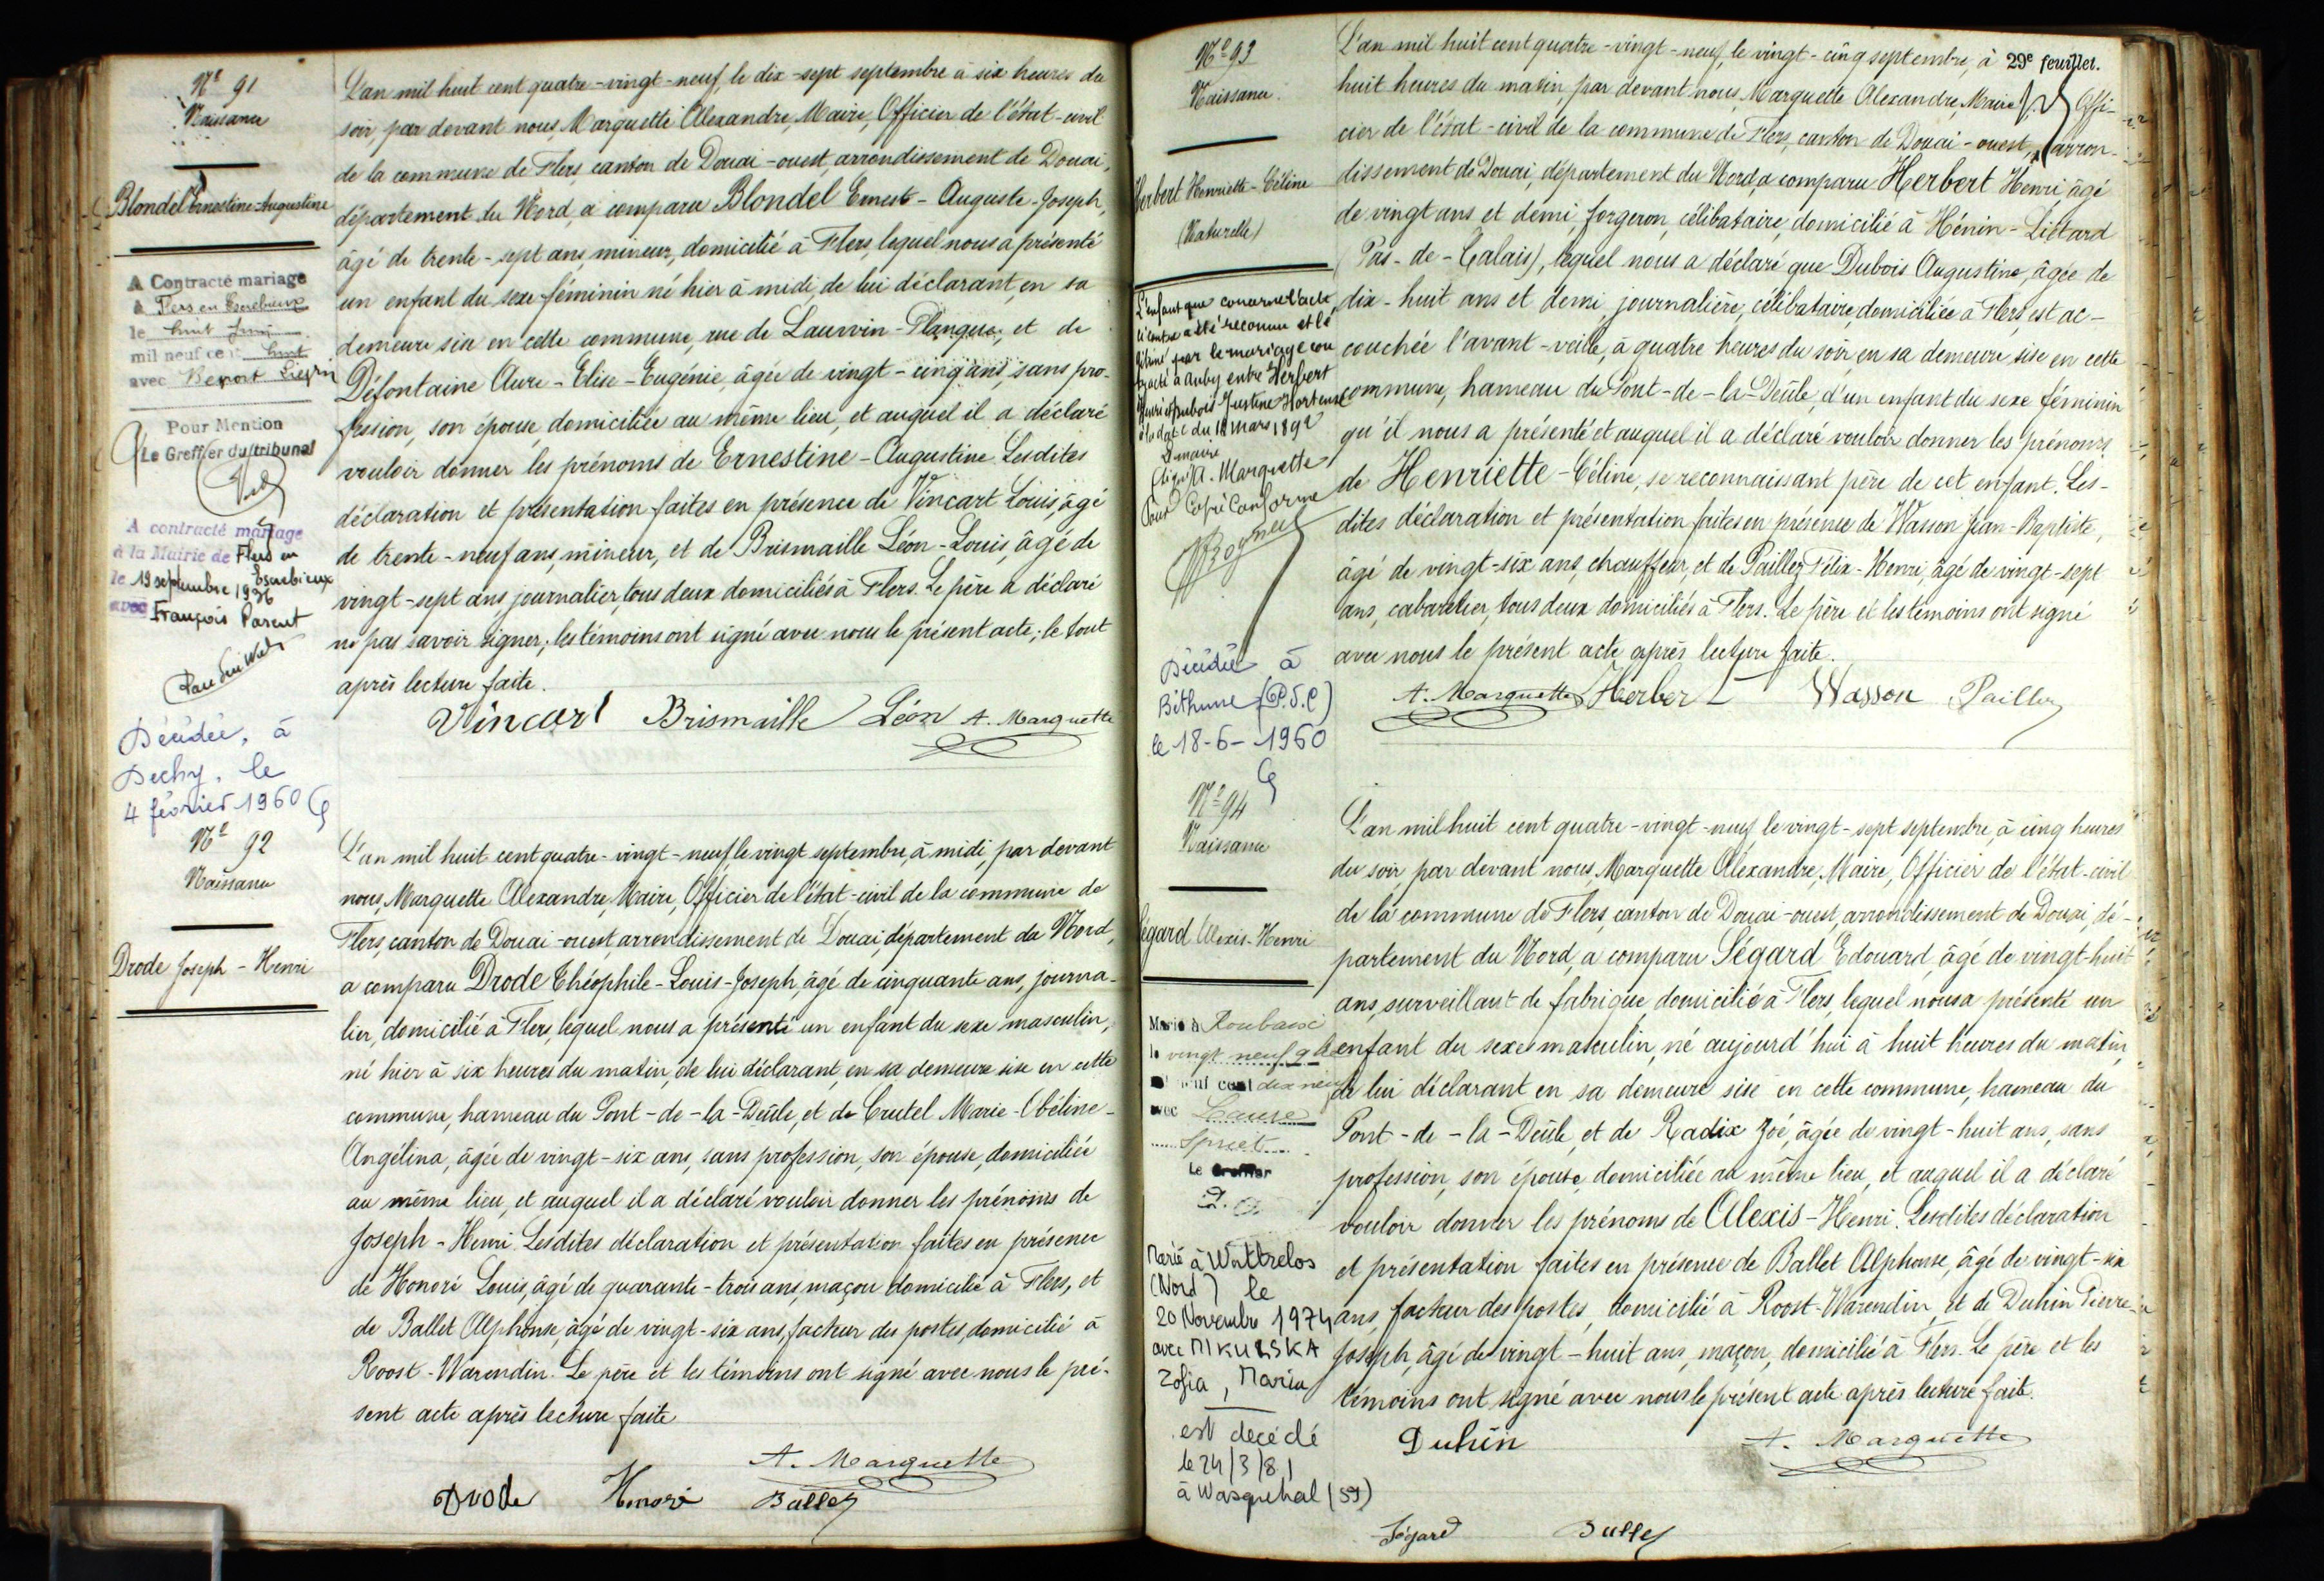 Nº 91
Naissance
Blondel Ernestine-Augustine
A Contracté mariage
à Flers en Escrebieux
le huit Juin
mil neuf cent huit
avec
Pour Mention
Le Greffier du tribunal
A contracté mariage
à la Mairie de Flers en
Escrebieux
le 19 septembre 1936
avec François Parent
Décédée, à
Dechy, le
4 février 1960
L'an mil huit cent quatre-vingt-neuf, le dix-sept septembre à six heures du
soir, par devant nous, Marquette Alexandre, Maire, Officier de l'état-civil
de la commune de Flers, canton de Douai-ouest, arrondissement de Douai,
département du Nord, a comparu Blondel Ernest-Auguste-Joseph,
âgé de trente-sept ans, mineur, domicilié à Flers, lequel nous a présenté
un enfant du sexe féminin né hier à midi, de lui déclarant, en sa
demeure sise en cette commune, rue de Lauwin-Planque, et de
Défontaine Aure-Elise-Eugénie, âgée de vingt-cinq ans, sans pro-
fession, son épouse, domiciliée au même lieu, et auquel il a déclaré
vouloir donner les prénoms de Ernestine-Augustine. Lesdites
déclaration et présentation faites en présence de Vincart Louis, âgé
de trente-neuf ans, mineur, et de Brismaille Léon-Louis, âgé de
vingt-sept ans, journalier, tous deux domiciliés à Flers. Le père a déclaré
ne pas savoir signer; les témoins ont signé avec nous le présent acte; le tout
après lecture faite.
Vincart Brismaille Léon A. Marquette
Nº 92
Naissance
Drode Joseph-Henri
L'an mil huit cent quatre-vingt-neuf, le vingt septembre, à midi, par devant
nous, Marquette Alexandre, Maire, Officier de l'état-civil de la commune de
Flers, canton de Douai-ouest, arrondissement de Douai, département du Nord,
a comparu Drode Théophile-Louis-Joseph, âgé de cinquante ans, journa-
lier, domicilié à Flers, lequel nous a présenté un enfant du sexe masculin,
né hier à six heures du matin, de lui déclarant, en sa demeure sise en cette
commune, hameau du Pont-de-la-Deûle, et de Crutel Marie-Obéline-
Angélina, âgée de vingt-six ans, sans profession, son épouse, domiciliée
au même lieu, et auquel il a déclaré vouloir donner les prénoms de
Joseph-Henri. Lesdites déclaration et présentation faites en présence
de Honoré Louis, âgé de quarante-trois ans, maçon domicilié à Flers, et
de Ballet Alphonse, âgé de vingt-six ans, facteur des postes, domicilié à
Roost-Warendin. Le père et les témoins ont signé avec nous le pré-
sent acte après lecture faite
A. Marquette
Drode Honoré Ballet
29e feuillet.
Nº 93
Naissance.
Herbert Henriette-Céline
(Naturelle)
L'enfant que concerne l'acte
ci contre a été reconnue et lé
gitimé par le mariage con
tracté à Auby entre Herbert
Henri et Dubois Justine Hortense
à la date du 12 mars 1892
Le maire
Signé A. Marquette
Pour Copie Conforme
Décédée à
Béthune (P.d.C)
le 18-6-1960
L'an mil huit cent quatre-vingt-neuf, le vingt-cinq septembre, à
huit heures du matin, par devant nous, Marquette Alexandre, Maire, Offi-
cier de l'état-civil de la commune de Flers, canton de Douai-ouest, arron-
dissement de Douai, département du Nord a comparu Herbert Henri âgé
de vingt ans et demi, forgeron, célibataire, domicilié à Hénin-Liétard
(Pas-de-Calais), lequel nous a déclaré que Dubois Augustine, âgée de
dix-huit ans et demi, journalière, célibataire, domiciliée à Flers, est ac-
couchée l'avant-veille, à quatre heures du soir, en sa demeure sise en cette
commune, hameau du Pont-de-la-Deûle, d'un enfant du sexe féminin
qu'il nous a présenté et auquel il a déclaré vouloir donner les prénoms
de Henriette-Céline, se reconnaissant père de cet enfant. Les-
dites déclaration et présentation faites en présence de Wasson Jean-Baptiste,
âgé de vingt-six ans, chauffeur, et de Paillez Félix-Henri, âgé de vingt-sept
ans, cabaretier, tous deux domiciliés à Flers. Le père et les témoins ont signé
avec nous le présent acte après lecture faite.
A. Marquette Herbert Wasson Paillez
Nº 94
Naissance
Ségard Alexis-Henri
Marié à Roubaix
le vingt neuf
mil neuf cent dix neuf
avec Laure
Spriet
Le Greffier
Marié à Wattrelos
(Nord) le
20 Novembre 1974
avec MIKULSKA
Zofia, Maria
est décédé
le 24/3/81
à Wasquehal (59)
L'an mil huit cent quatre-vingt-neuf, le vingt-sept septembre, à cinq heures
du soir, par devant nous, Marquette Alexandre, Maire, Officier de l'état-civil
de la commune de Flers, canton de Douai-ouest, arrondissement de Douai, dé-
partement du Nord, a comparu Ségard Edouard, âgé de vingt-huit
ans, surveillant de fabrique, domicilié à Flers, lequel nous a présenté un
enfant du sexe masculin, né aujourd'hui à huit heures du matin
de lui déclarant en sa demeure sise en cette commune, hameau du
Pont-de-la-Deûle, et de Radix Zoé, âgée de vingt-huit ans, sans
profession, son épouse, domiciliée au même lieu, et auquel il a déclaré
vouloir donner les prénoms de Alexis-Henri. Lesdites déclaration
et présentation faites en présence de Ballet Alphonse, âgé de vingt-six
ans, facteur des postes, domicilié à Roost-Warendin, et de Duhin Pierre-
Joseph, âgé de vingt-huit ans, maçon, domicilié à Flers. Le père et les
témoins ont signé avec nous le présent acte après lecture faite.
Duhin A. Marquette
Ségard Ballet